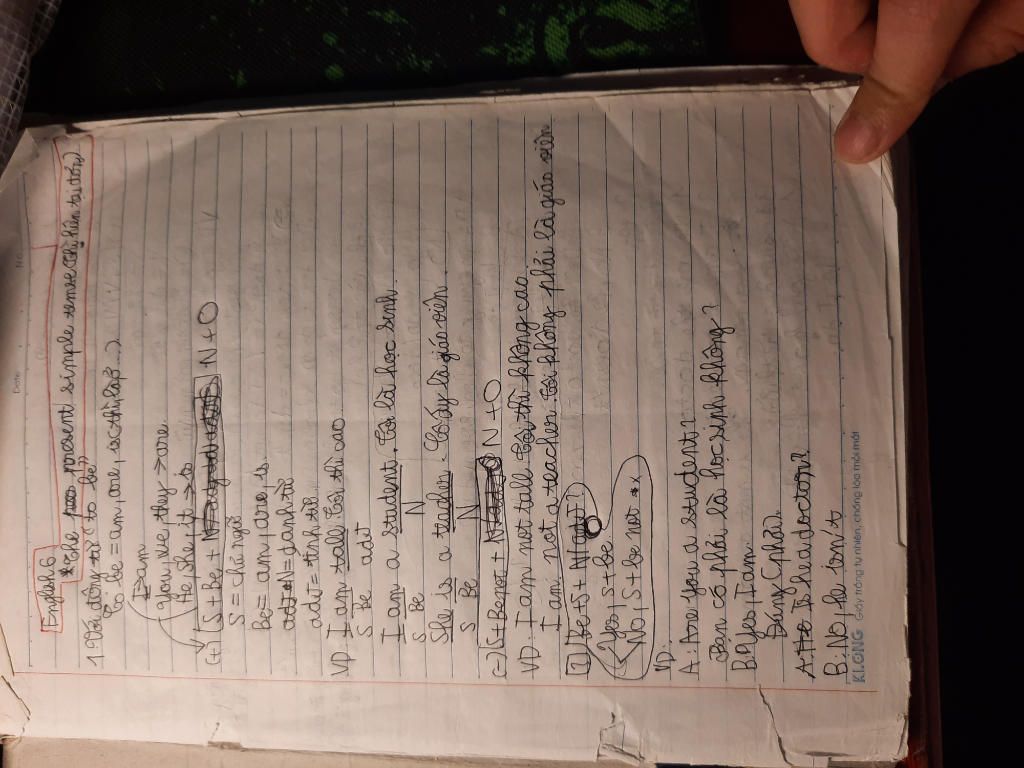 Date No.
English 6
*The present simple tense (Thì hiện tại đơn)
1. Với động từ "to be"
To be = am, are, is (thì, là, ở...)
I > am
you, we, they > are
He, she, it > is
(+) S + be + N + O
S = chủ ngữ
Be = am, are, is
N = danh từ
adj = tính từ
VD: I am tall Tôi thì cao
S Be adj
I am a student. Tôi là học sinh
S Be N
She is a teacher. Cô ấy là giáo viên
S Be N
(-) S + Be not + N + O
VD: I am not tall Tôi thì không cao
I am not a teacher Tôi không phải là giáo viên
(?) Be + S + N/adj?
Yes, S + be
No, S + be not
VD:
A: Are you a student?
Bạn có phải là học sinh không?
B: Yes, I am
Đúng (phải)
A: Is he a doctor?
B: No, he isn't
KLONG Giấy trắng tự nhiên, chống lóa mỏi mắt